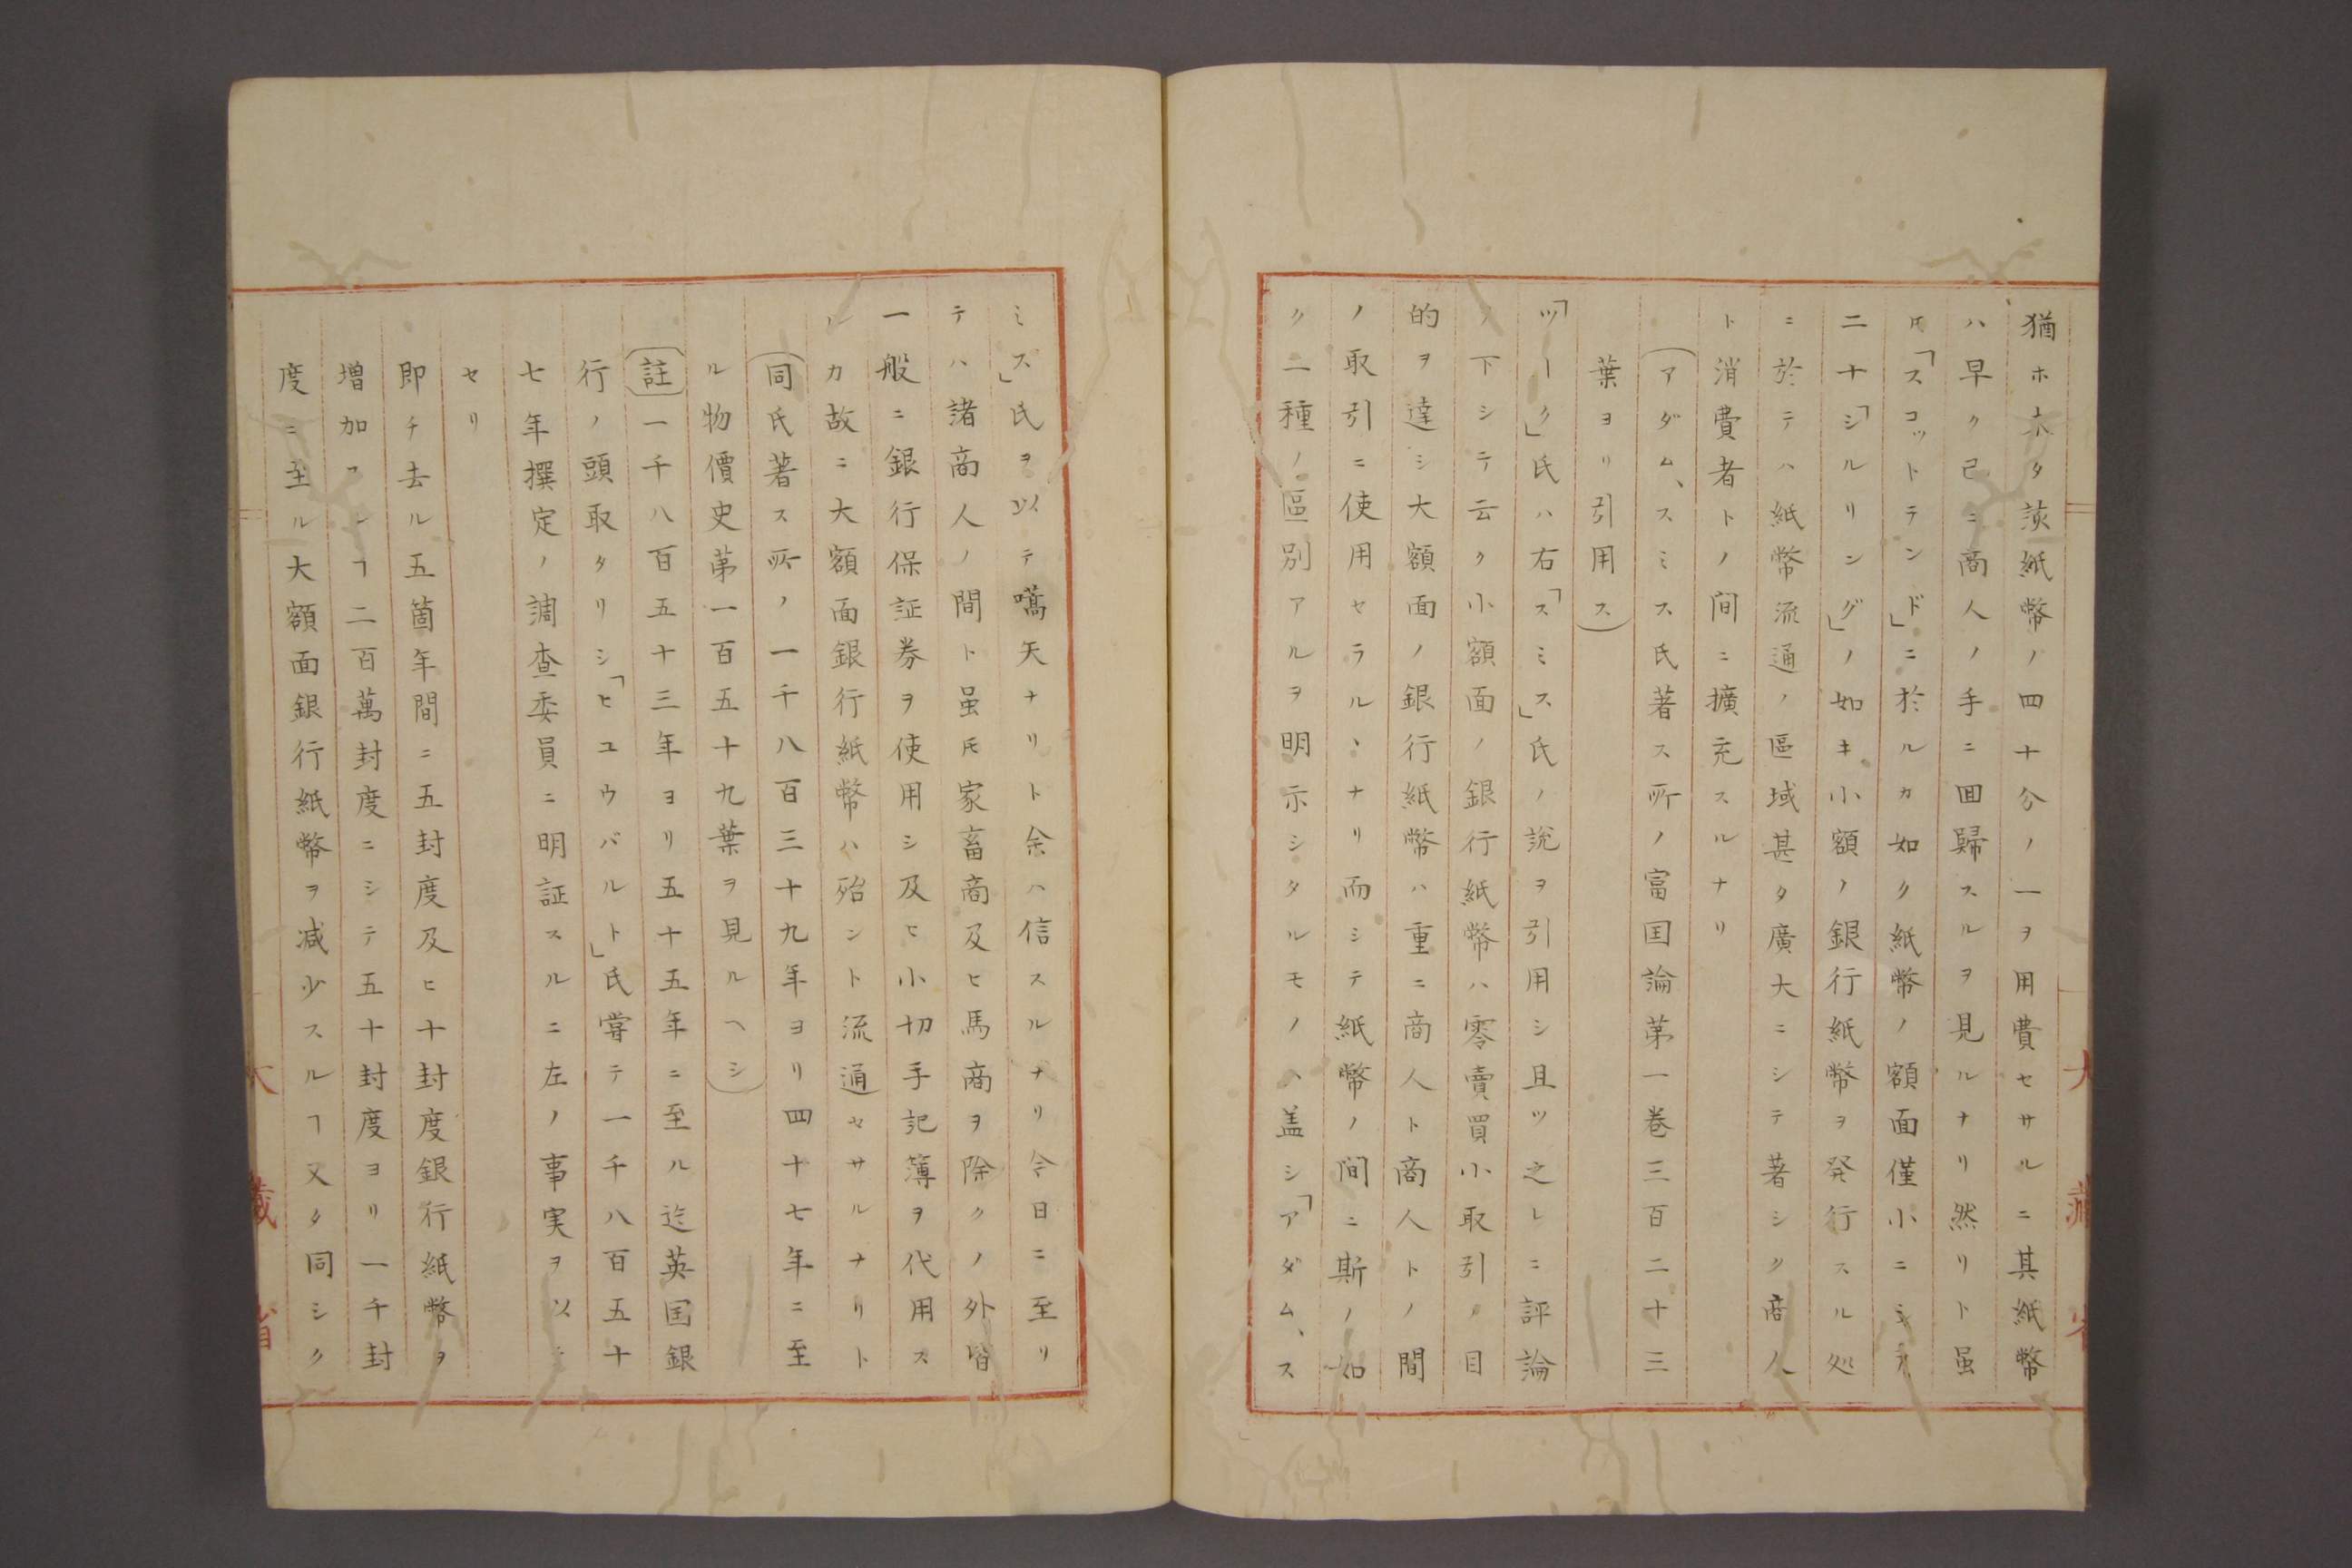 猶ホ未タ該紙幣ノ四十分ノ一ヲ用費セサルニ其紙幣
ハ早ク已ニ商人ノ手ニ囬歸スルヲ見ルナリ然リト虽
𪜈「スコットランド」ニ於ルカ如ク紙幣ノ額面僅小ニシテ
二十「シルリング」ノ如キ小額ノ銀行紙幣ヲ発行スル処
ニ於テハ紙幣流通ノ區域甚タ廣大ニシテ著シク商人
ト消費者トノ間ニ擴充スルナリ
(アダム、スミス氏著ス所ノ富国論第一巻三百二十三
葉ヨリ引用ス)
「ツーク」氏ハ右「スミス」氏ノ説ヲ引用シ且ツ之レニ評論
ノ下シテ云ク小額面ノ銀行紙幣ハ零賣買小取引ノ目
的ヲ達シ大額面ノ銀行紙幣ハ重ニ商人ト商人トノ間
ノ取引ニ使用セラルヽナリ而シテ紙幣ノ間ニ斯ノ如
ク二種ノ區別アルヲ明示シタルモノハ盖シ「アダム、ス
ミズ」氏ヲ以テ嚆矢ナリト余ハ信スルナリ今日ニ至リ
テハ諸商人ノ間ト虽𪜈家畜商及ヒ馬商ヲ除クノ外皆
一般ニ銀行保証券ヲ使用シ及ヒ小切手記簿ヲ代用ス
ルカ故ニ大額面銀行紙幣ハ殆ント流通セサルナリト
(同氏著ス所ノ一千八百三十九年ヨリ四十七年ニ至
ル物價史第一百五十九葉ヲ見ルヘシ)
(註)一千八百五十三年ヨリ五十五年ニ至ル迄英国銀
行ノ頭取タリシ「ヒユウバルト」氏嘗テ一千八百五十
七年撰定ノ調査委員ニ明証スルニ左ノ事実ヲ以ニ
セリ
即チ去ル五箇年間ニ五封度及ヒ十封度銀行紙幣ヲ
増加スヿ二百萬封度ニシテ五十封度ヨリ一千封
度ニ至ル大額面銀行紙幣ヲ减少スルヿ又タ同シク
大藏省
大藏省